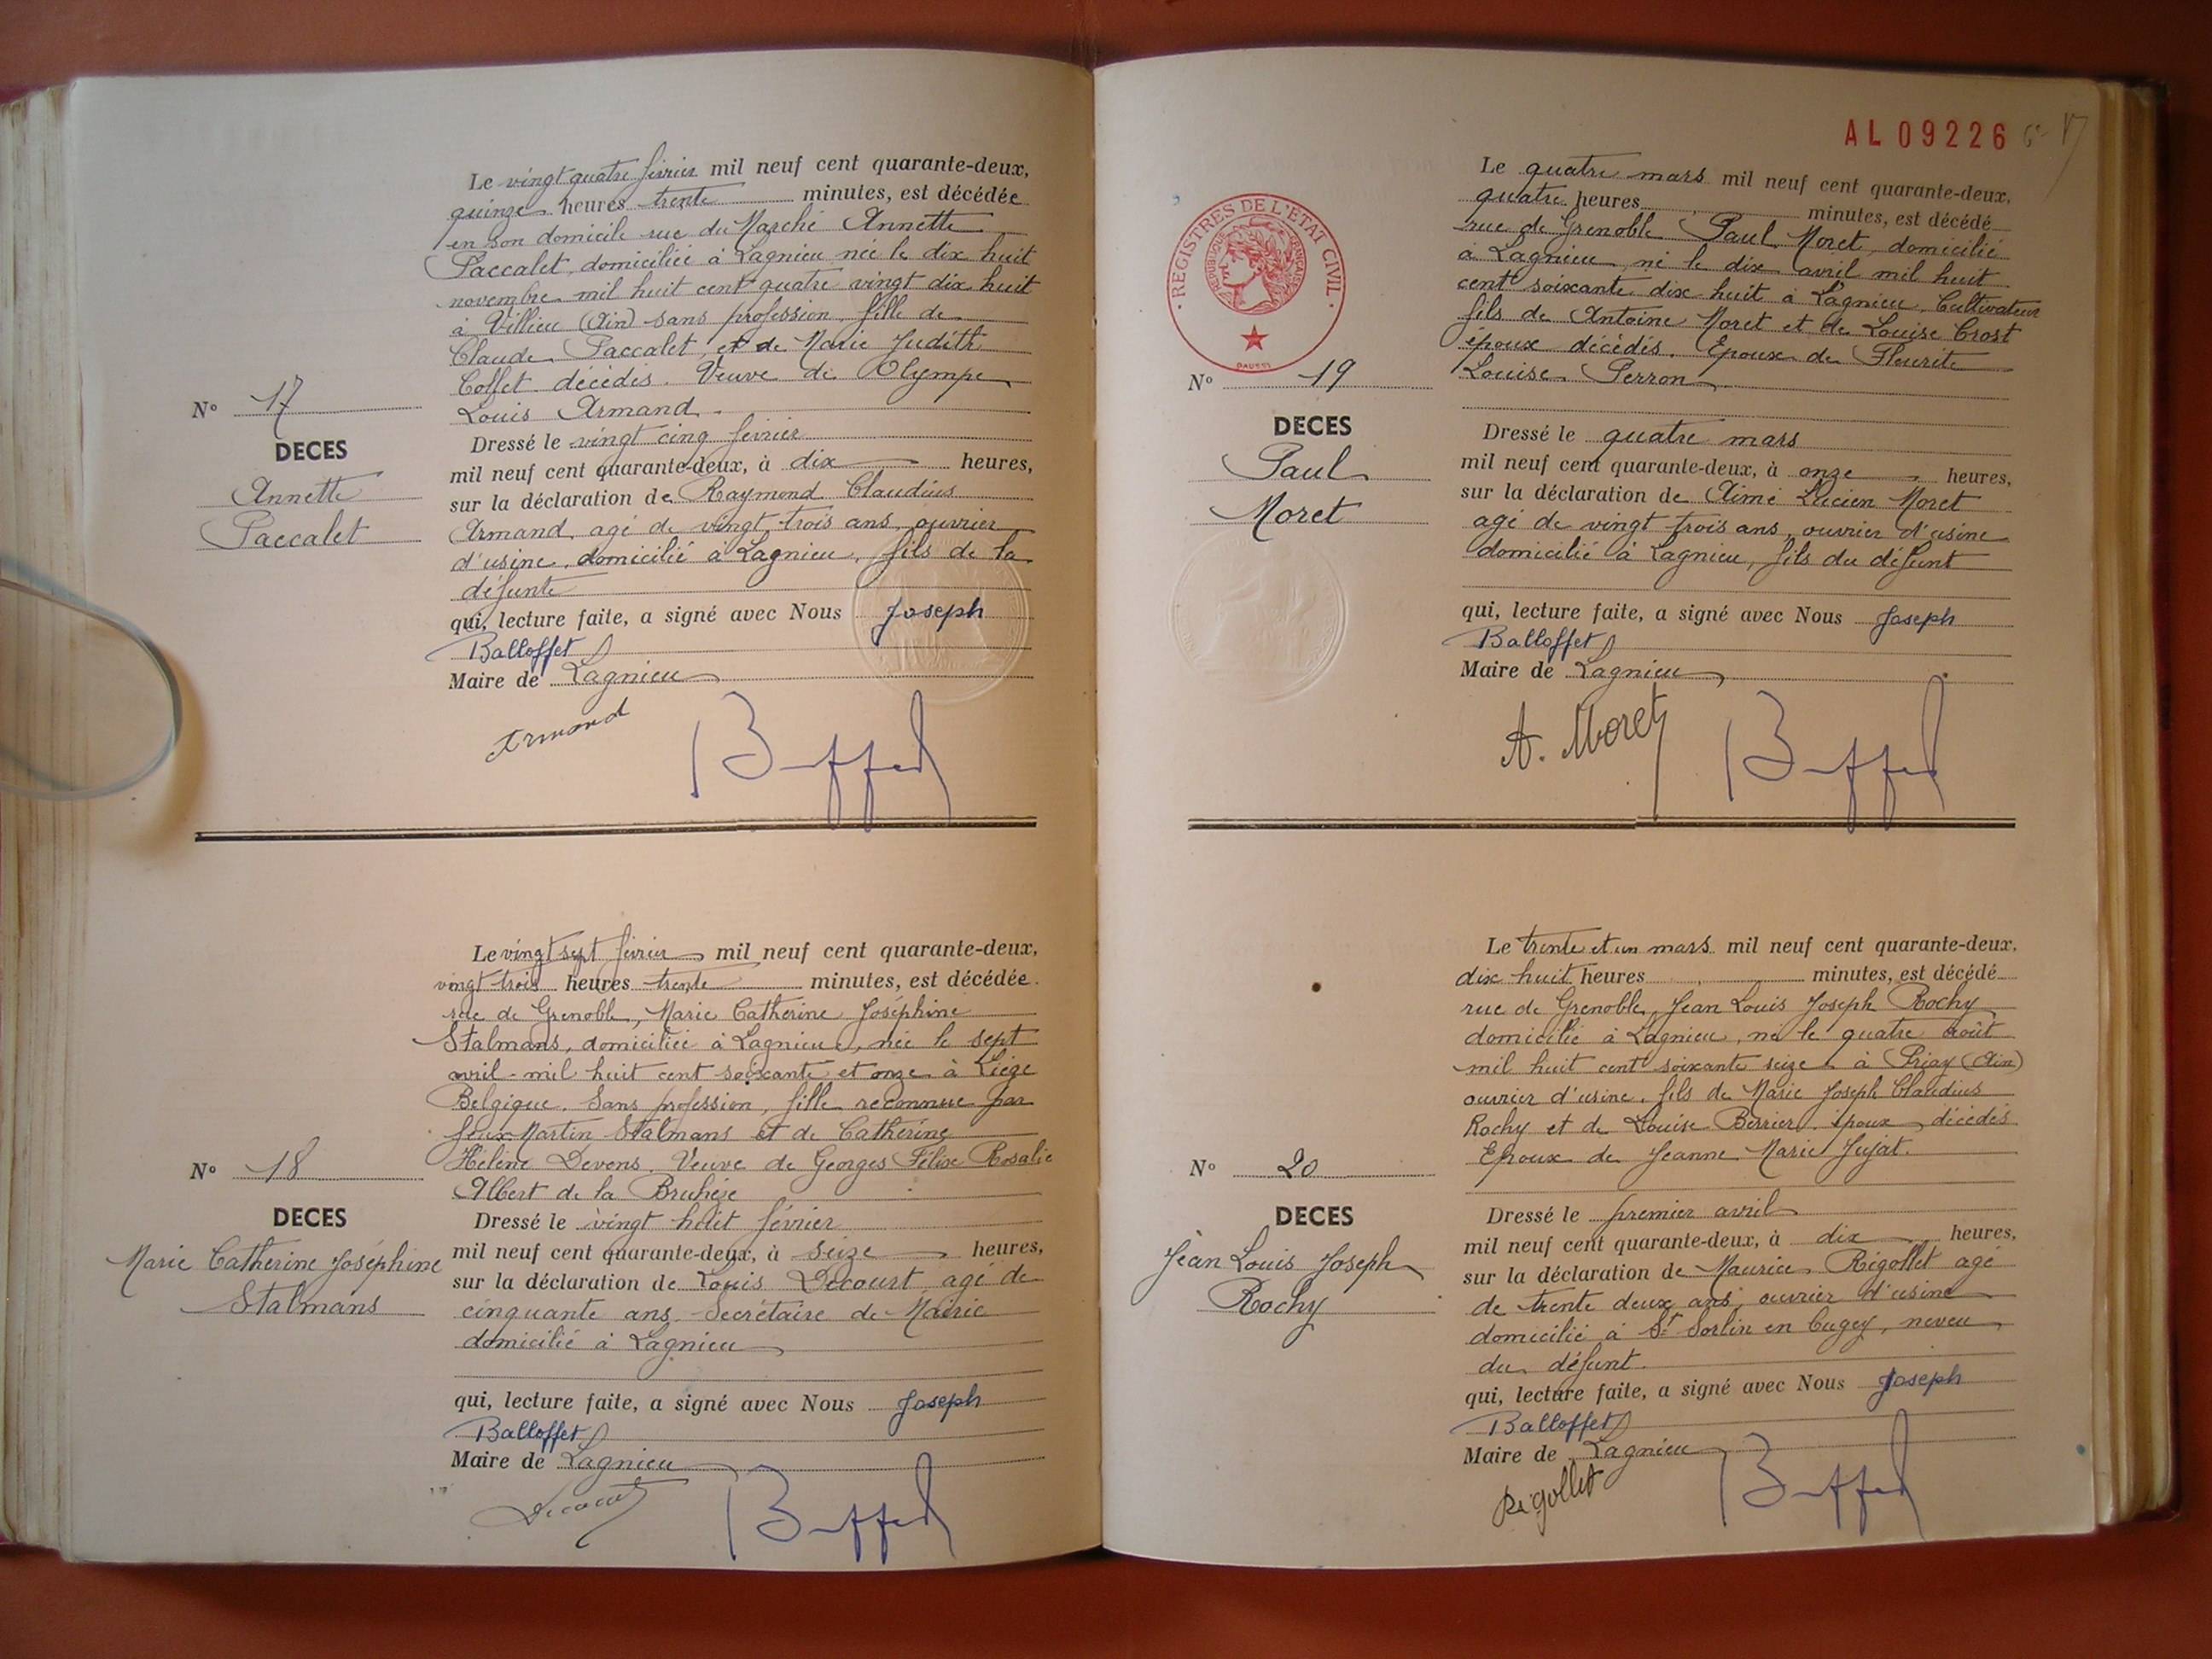 Le vingt quatre février mil neuf cent quarante-deux,
quinze heures trente minutes, est décédée
en son domicile rue du Marché Annette
Paccalet, domiciliée à Lagnieu née le dix huit
novembre mil huit cent quatre vingt dix huit
à Villieu (Ain) sans profession, fille de
Claude Paccalet et de Marie Judith
Coffet décédés. Veuve de Olympe
Louis Armand.
N° 17
DECES
Annette
Paccalet
Dressé le vingt cinq février
mil neuf cent quarante-deux, à dix heures,
sur la déclaration de Raymond Claudius
Armand, agé de vingt trois ans, ouvrier
d'usine, domicilié à Lagnieu, fils de la
défunte
qui, lecture faite, a signé avec Nous Joseph
Balloffet
Maire de Lagnieu
Armand
Le vingt sept février mil neuf cent quarante-deux,
vingt trois heures trente minutes, est décédée
rue de Grenoble, Marie Catherine Joséphine
Stalmans, domiciliée à Lagnieu, née le sept
avril mil huit cent soixante et onze à Liège
Belgique. Sans profession, fille reconnue par
feux Martin Stalmans et de Catherine
Hélène Devens. Veuve de Georges Félix Rosalie
Albert de la Bruhèze
N° 18
DECES
Marie Catherine Joséphine
Stalmans
Dressé le vingt huit février
mil neuf cent quarante-deux, à seize heures,
sur la déclaration de Louis Decourt, agé de
cinquante ans, Secrétaire de Mairie
domicilié à Lagnieu
qui, lecture faite, a signé avec Nous Joseph
Balloffet
Maire de Lagnieu
Decourt
AL 09226
REGISTRES DE L'ETAT CIVIL
REPUBLIQUE FRANÇAISE
Le quatre mars mil neuf cent quarante-deux,
quatre heures minutes, est décédé
rue de Grenoble Paul Moret, domicilié
à Lagnieu, né le dix avril mil huit
cent soixante dix huit à Lagnieu, Cultivateur
fils de Antoine Moret et de Louise Crost
époux décédés. Epoux de Fleurite
Louise Perron
N° 19
DECES
Paul
Moret
Dressé le quatre mars
mil neuf cent quarante-deux, à onze heures,
sur la déclaration de Aimé Lucien Moret
agé de vingt trois ans, ouvrier d'usine
domicilié à Lagnieu, fils du défunt
qui, lecture faite, a signé avec Nous Joseph
Balloffet
Maire de Lagnieu
A. Moret
Le trente et un mars mil neuf cent quarante-deux,
dix huit heures minutes, est décédé
rue de Grenoble, Jean Louis Joseph Rochy
domicilié à Lagnieu, né le quatre août
mil huit cent soixante seize à Priay (Ain)
ouvrier d'usine, fils de Marie Joseph Claudius
Rochy et de Louise Berrier époux décédés.
Epoux de Jeanne Marie Jujat.
N° 20
DECES
Jean Louis Joseph
Rochy
Dressé le premier avril
mil neuf cent quarante-deux, à dix heures,
sur la déclaration de Maurice Rigollet agé
de trente deux ans, ouvrier d'usine
domicilié à St Sorlin en Bugey, neveu
du défunt.
qui, lecture faite, a signé avec Nous Joseph
Balloffet
Maire de Lagnieu
Rigollet